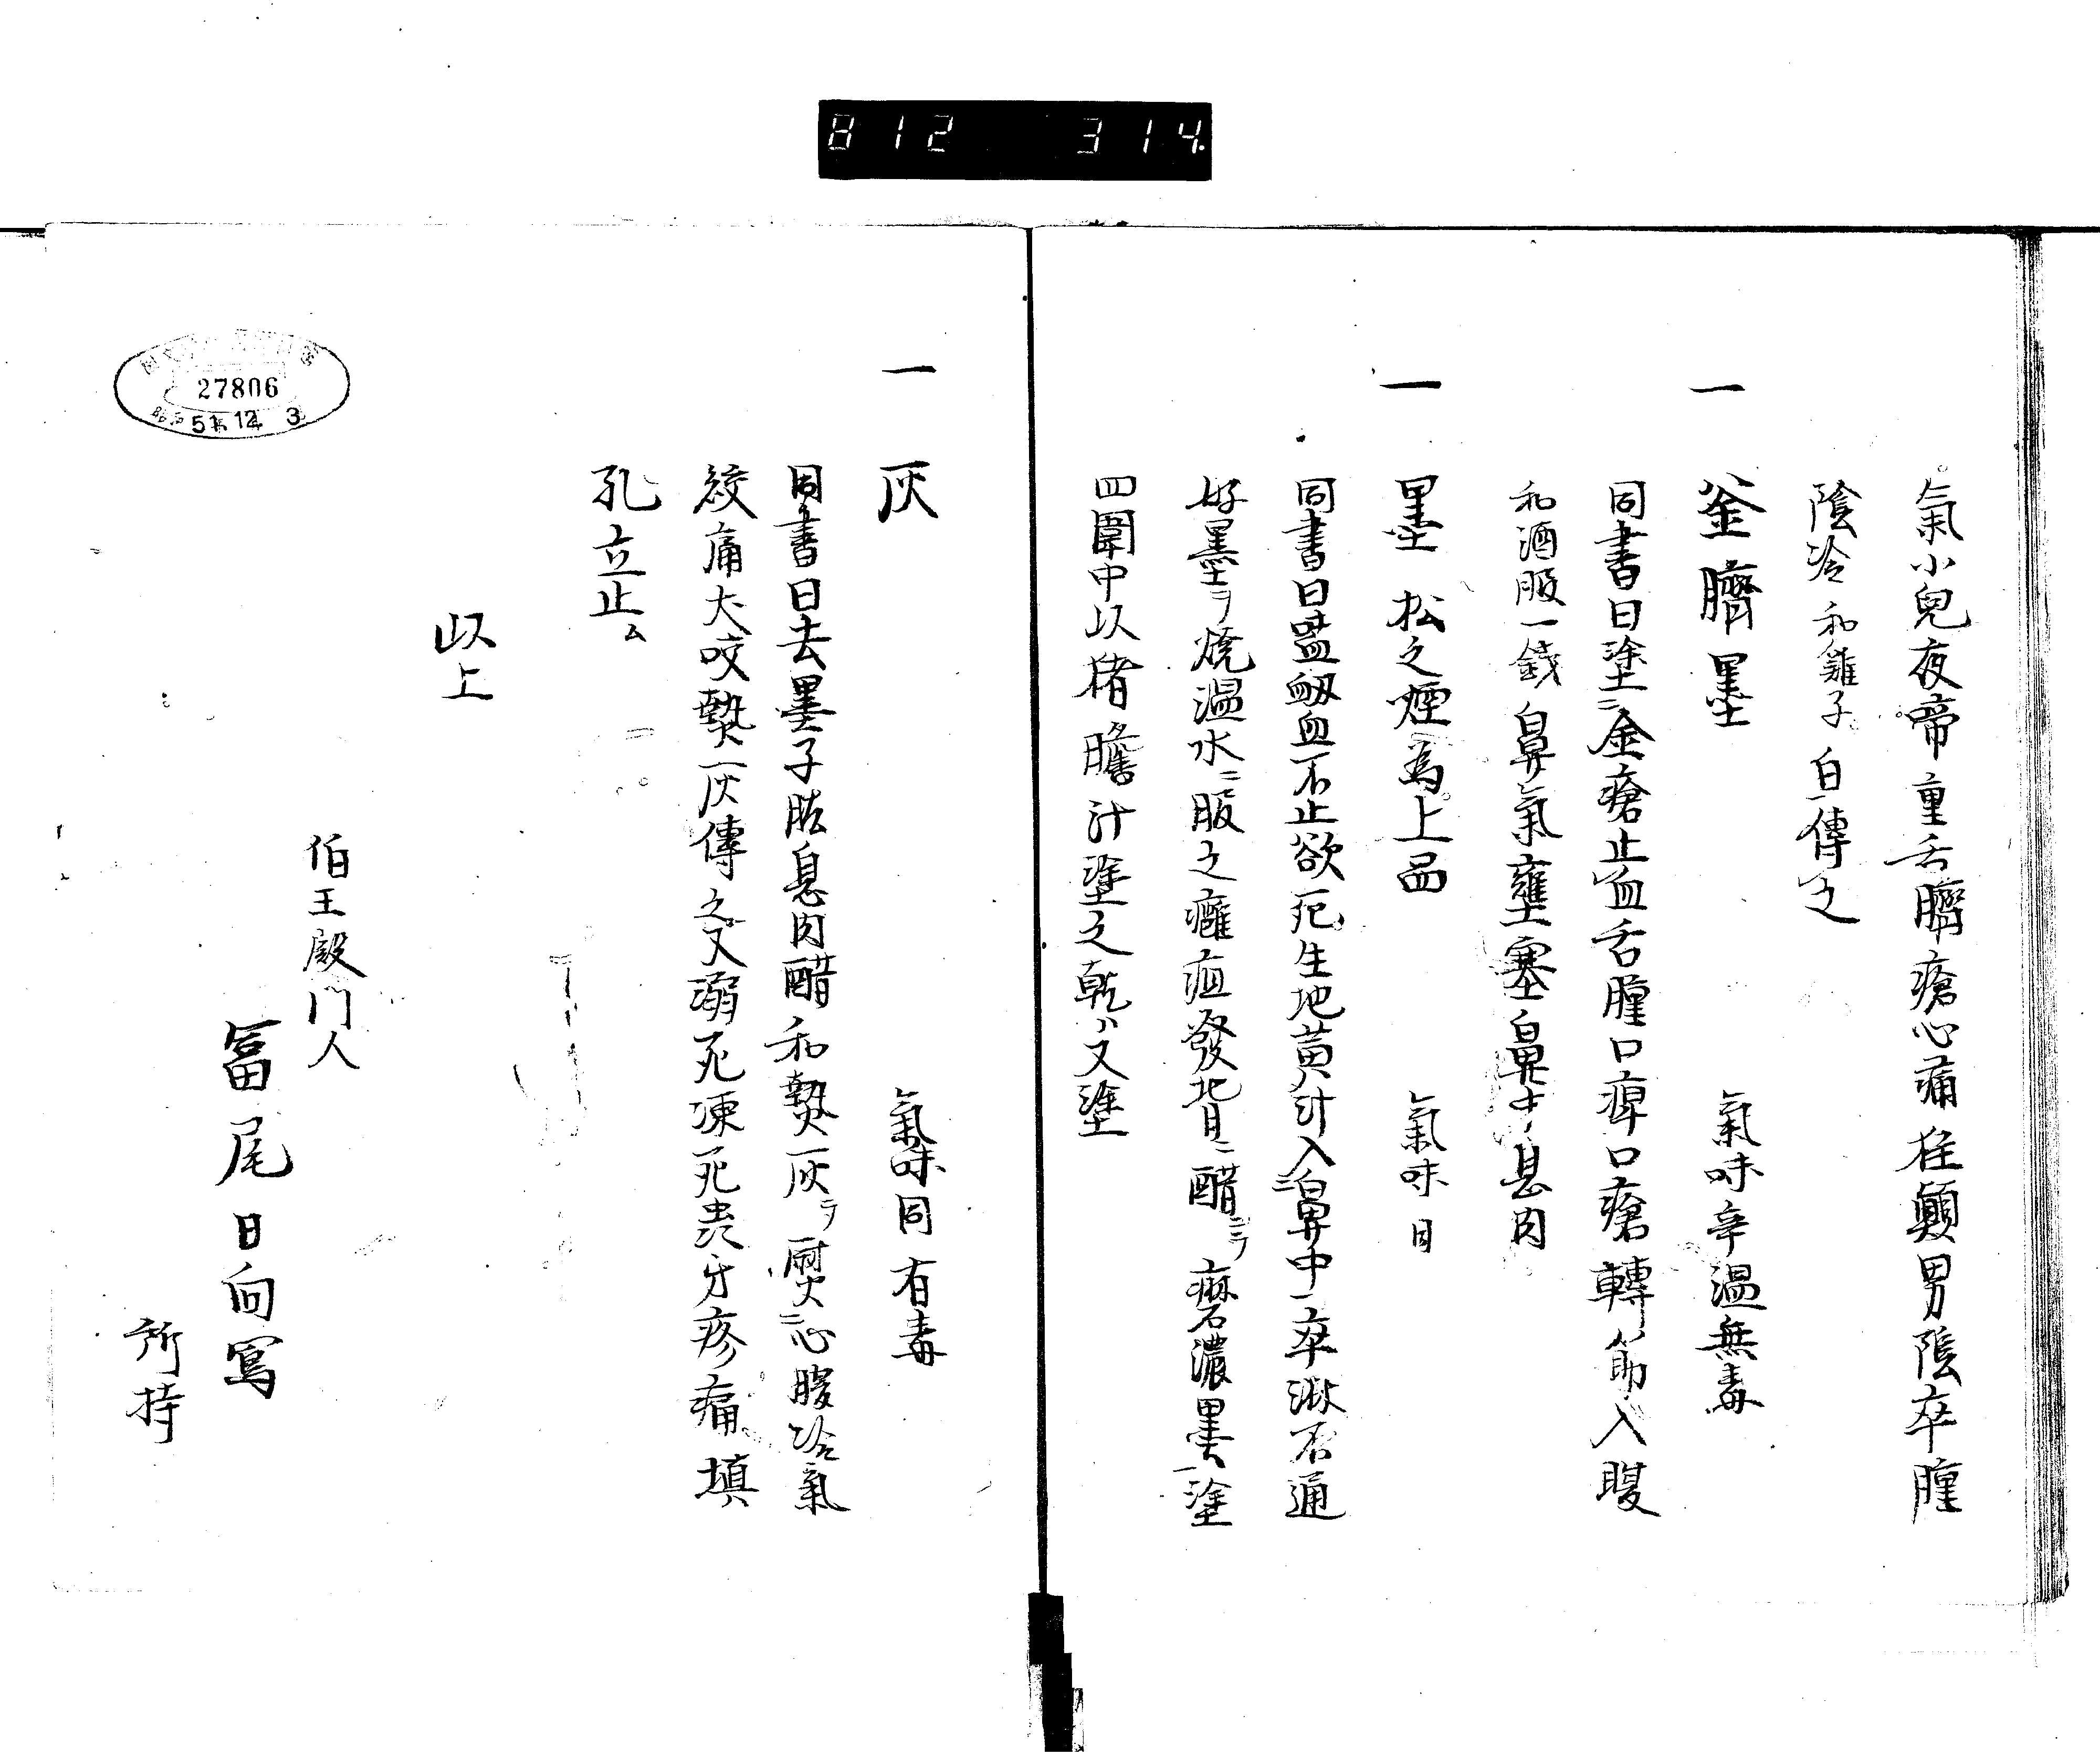 812 314.
氣小兒夜啼重舌臍瘡心痛狂顛男陰卒腫
陰冷和雞子白傅之
一 釜臍墨 氣味辛温無毒
同書曰塗ニ金瘡止血舌腫口痺口瘡轉筋入腹
和酒服一錢鼻氣壅塞鼻中息肉
一 墨 松之煙為上品 氣味目
同書曰 衂血不止欲死生地黃汁入ニ鼻中一卒淋不通
好墨ヲ燒温水ニ服之癰疽發背ニ醋ニヲ磨濃墨塗
四圍中以猪膽汁塗之乾ハ又塗
一 灰 氣味同有毒
同書曰去墨子 息肉醋和熱灰ヲ熨ニ心腹冷氣
絞痛犬咬熱灰傅之又溺死凍死蟲牙疼痛填
孔立止
以上
伯王殿門人
冨尾日向寫
所持
27806
51.12.3